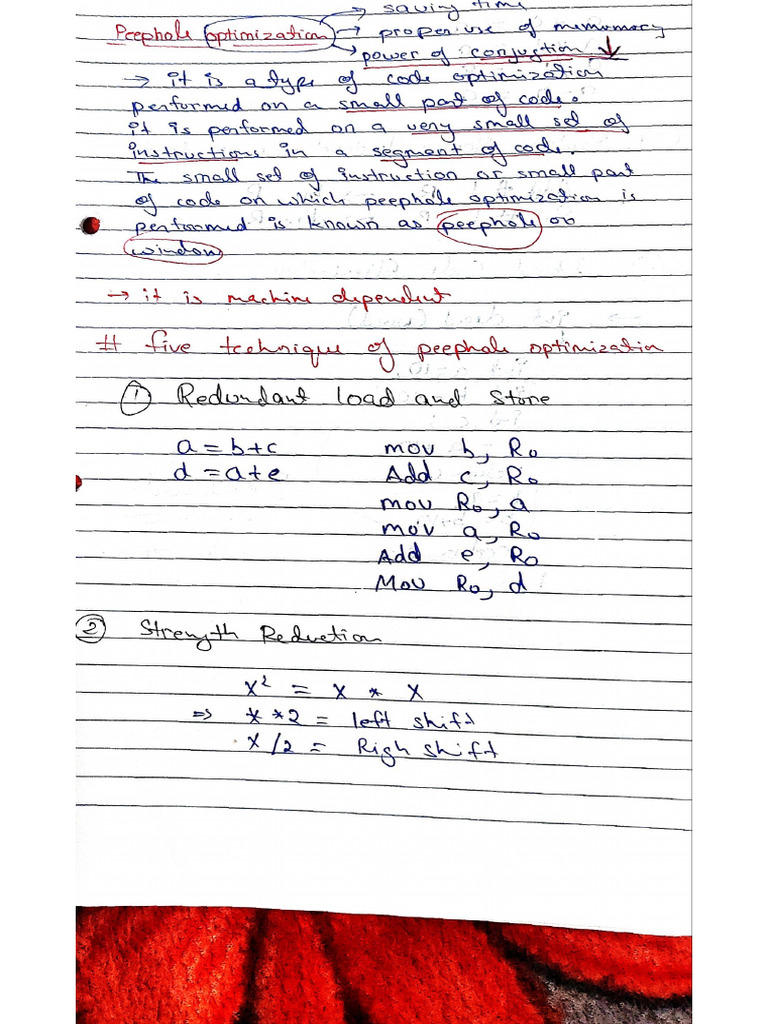 saving time
Peephole optimization → proper use of memomory
power of conjuction ↓
→ it is a type of code optimization
performed on a small part of code.
it is performed on a very small set of
instructions in a segment of code.
The small set of instruction or small part
of code on which peephole optimization is
performed is known as peephole or
window
→ it is machine dependent
# five technique of peephole optimization
① Redundant load and store
a = b + c mov b, R0
d = a + e Add c, R0
mov R0, a
mov a, R0
Add e, R0
Mov R0, d
② Strength Reduction
x² = x * x
⇒ x * 2 = left shift
x / 2 = Righ shift